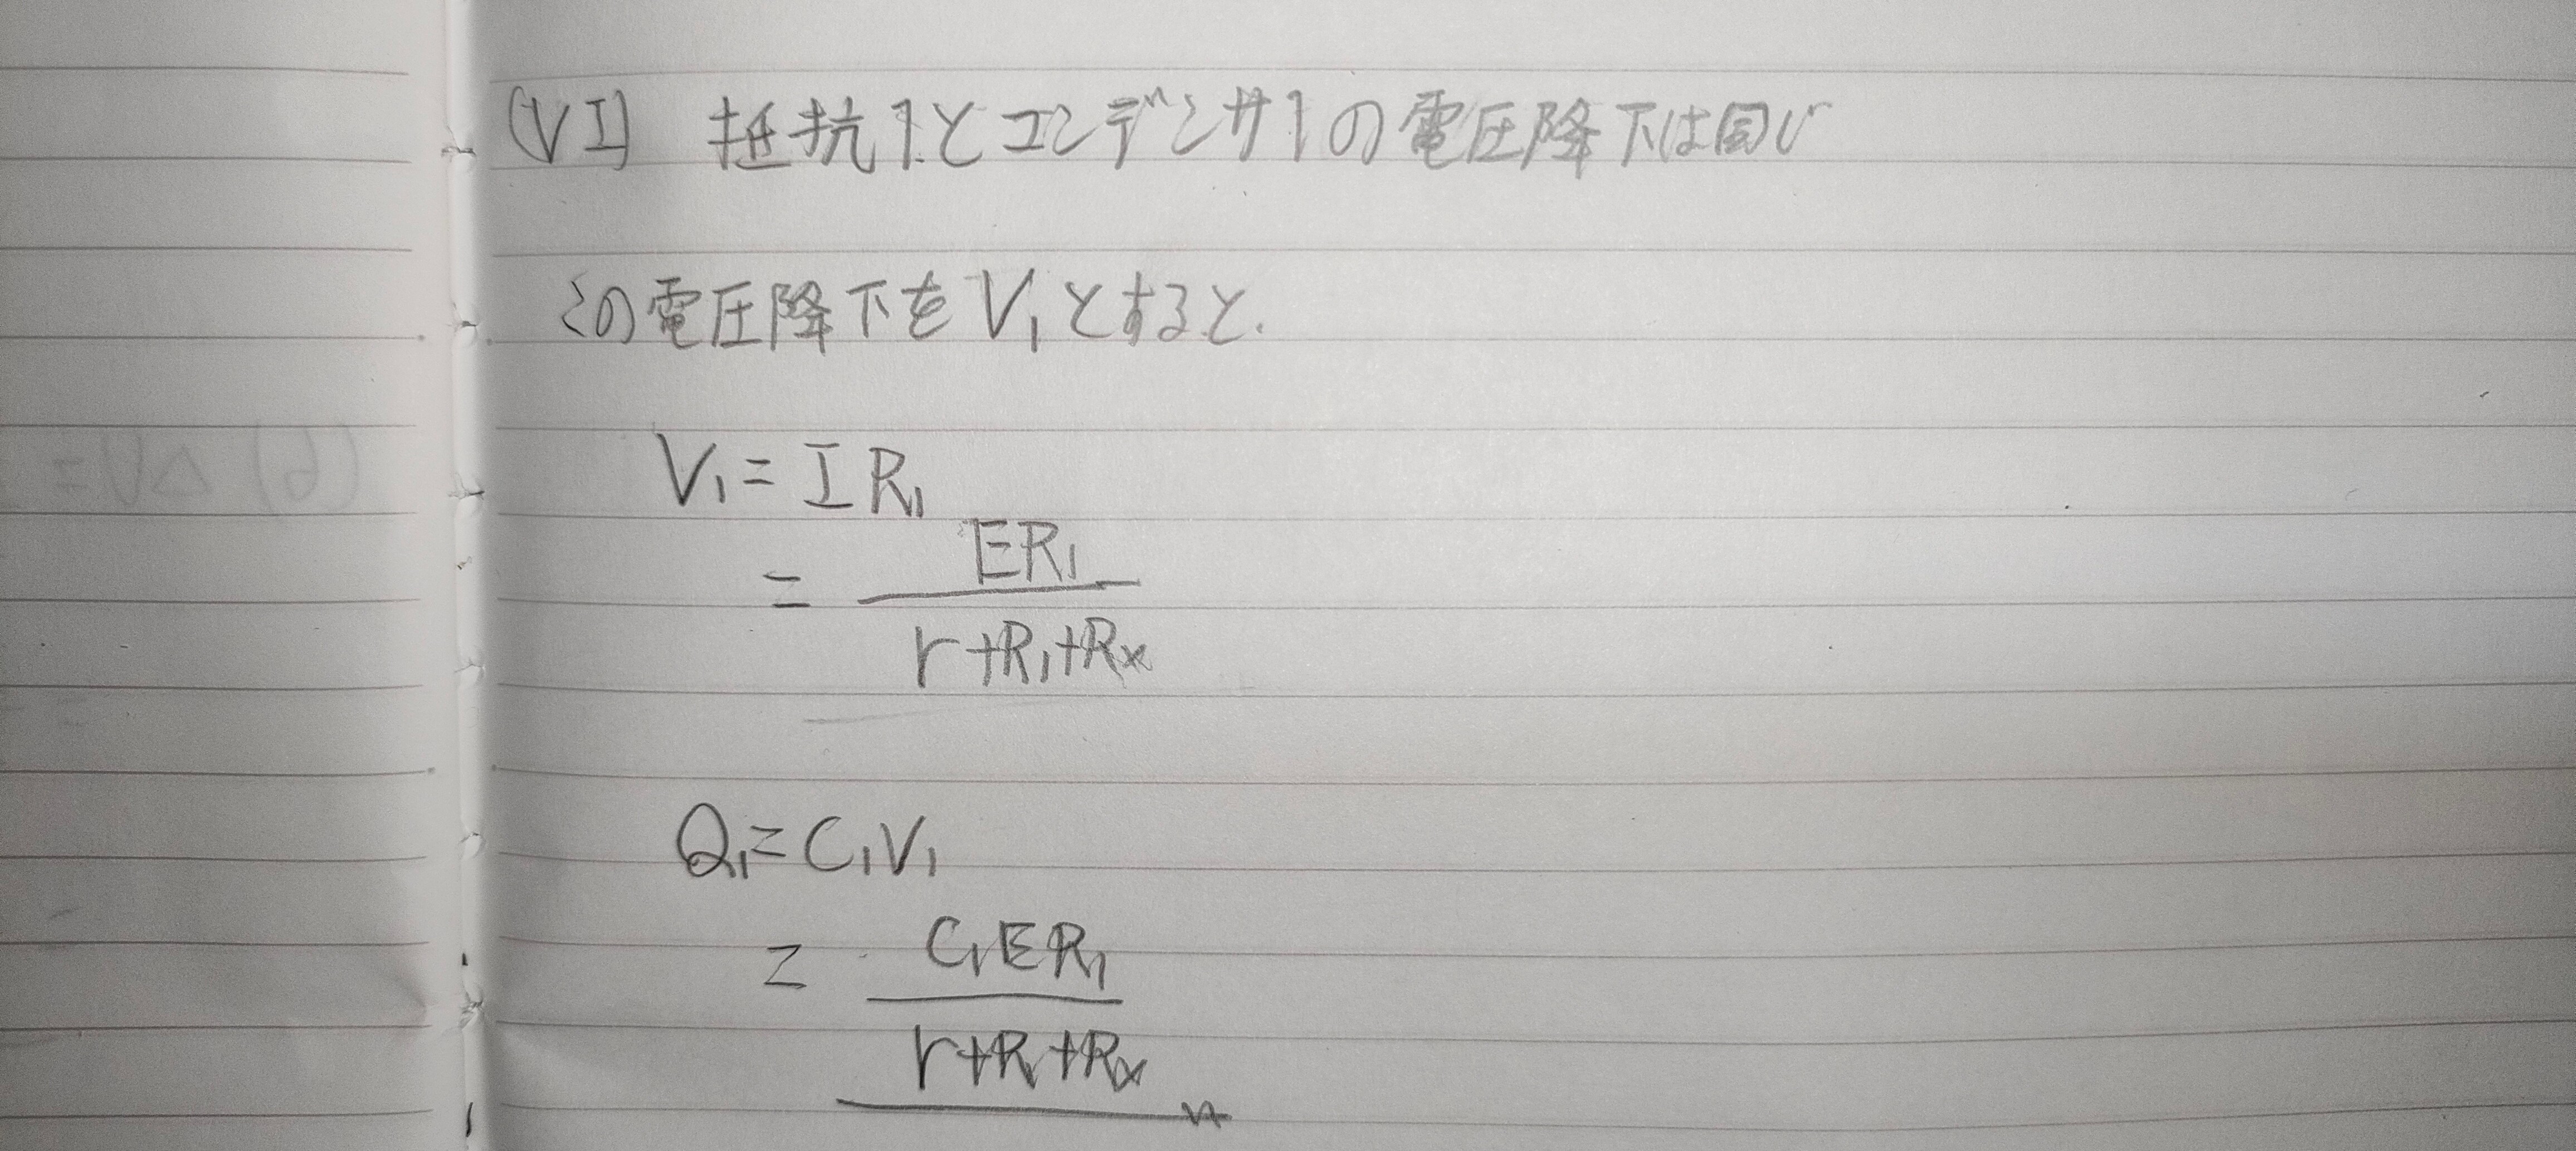 (VI) 抵抗1とコンデンサ1の電圧降下は同じ
この電圧降下をV₁とすると.
V₁ = I R₁
= ER₁ / r+R₁+Rx
Q₁ = C₁V₁
= C₁ER₁ / r+R₁+Rx
(6) ΔU =